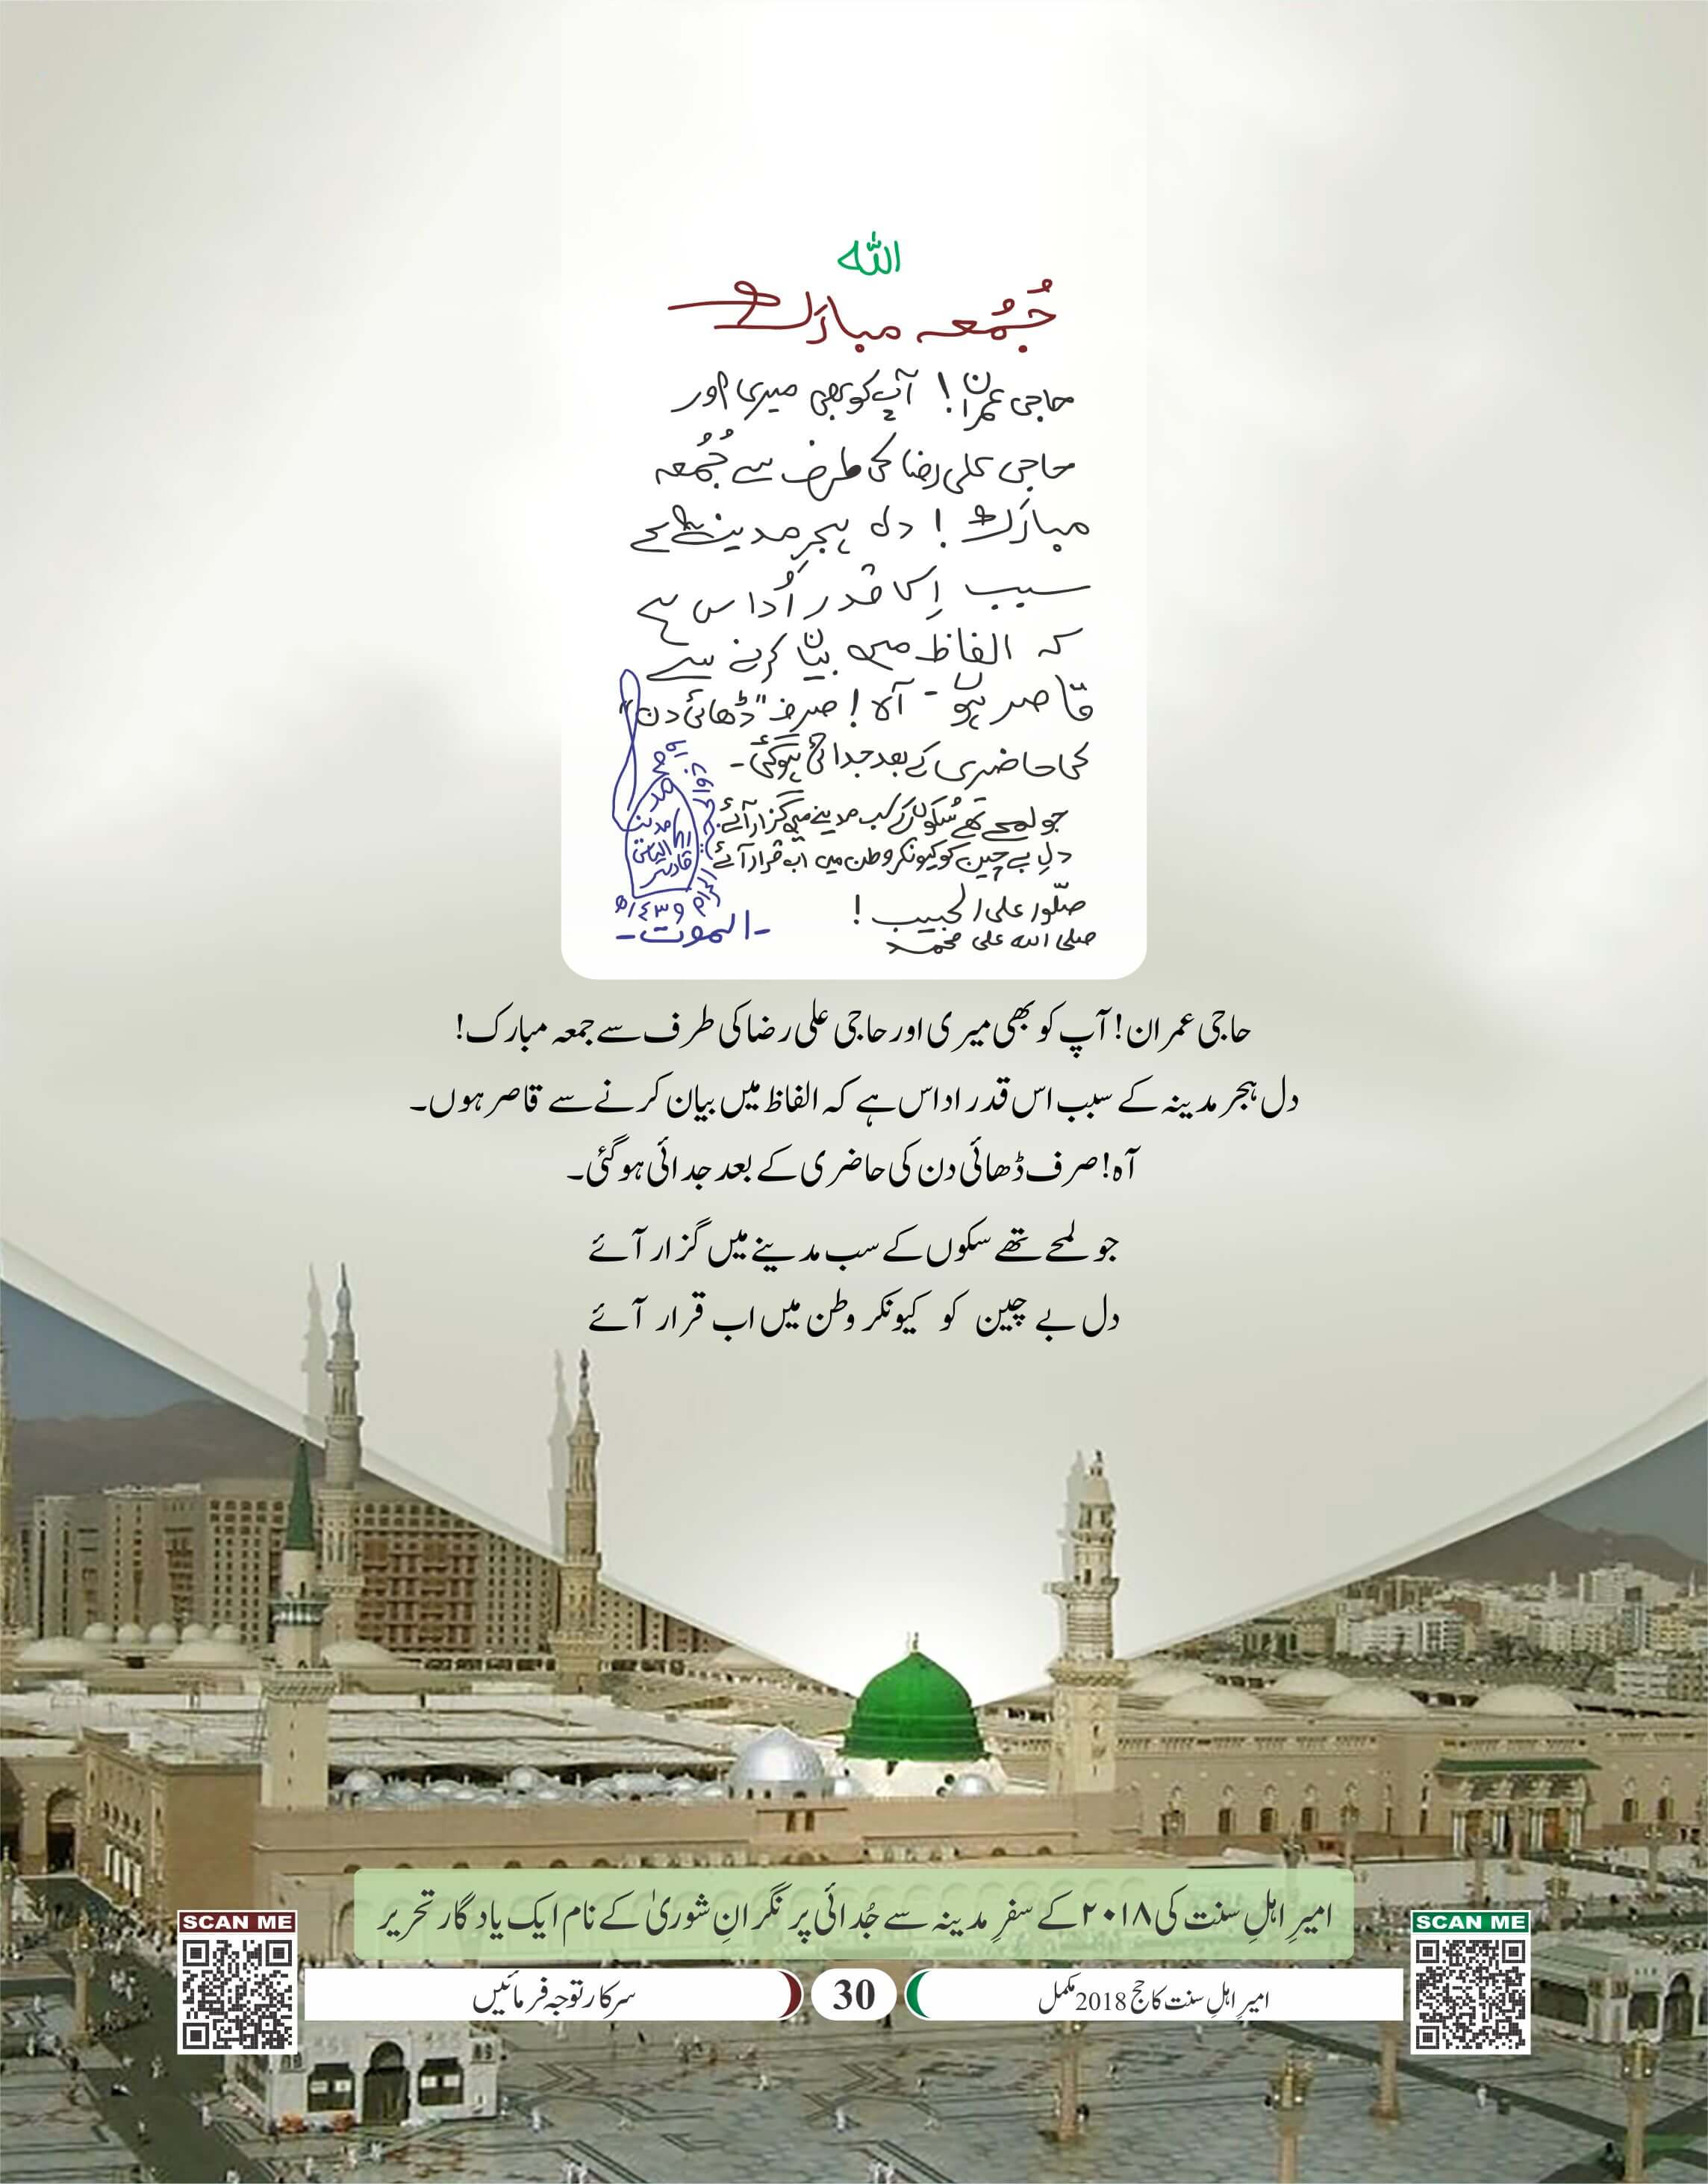 الله
جُمُعہ مبارَک
حاجی عمران! آپ کو بھی میری اور
حاجی علی رضا کی طرف سے جُمُعہ
مبارَک! دل ہجرِ مدینہ کے
سبب اِس قدر اُداس ہے
کہ الفاظ میں بیان کرنے سے
قاصر ہوں۔ آہ! صرف "ڈھائی دن"
کی حاضری کے بعد جدائی ہوگئی۔
جو لمحے تھے سُکوں کے سب مدینے میں گزار آئے
دلِ بے چین کو کیونکر وطن میں اب قرار آئے
صلّوا علی الحبیب!
صلی اللہ علی محمد
۱٤۳۹ھ
-الموت-
حاجی عمران! آپ کو بھی میری اور حاجی علی رضا کی طرف سے جمعہ مبارک!
دل ہجر مدینہ کے سبب اس قدر اداس ہے کہ الفاظ میں بیان کرنے سے قاصر ہوں۔
آہ! صرف ڈھائی دن کی حاضری کے بعد جدائی ہوگئی۔
جو لمحے تھے سکوں کے سب مدینے میں گزار آئے
دل بے چین کو کیونکر وطن میں اب قرار آئے
امیرِ اہلِ سنت کی ۲۰۱۸ کے سفرِ مدینہ سے جُدائی پر نگرانِ شوریٰ کے نام ایک یادگار تحریر
SCAN ME
امیرِ اہلِ سنت کا حج 2018 مکمل
30
سرکار توجہ فرمائیں
SCAN ME